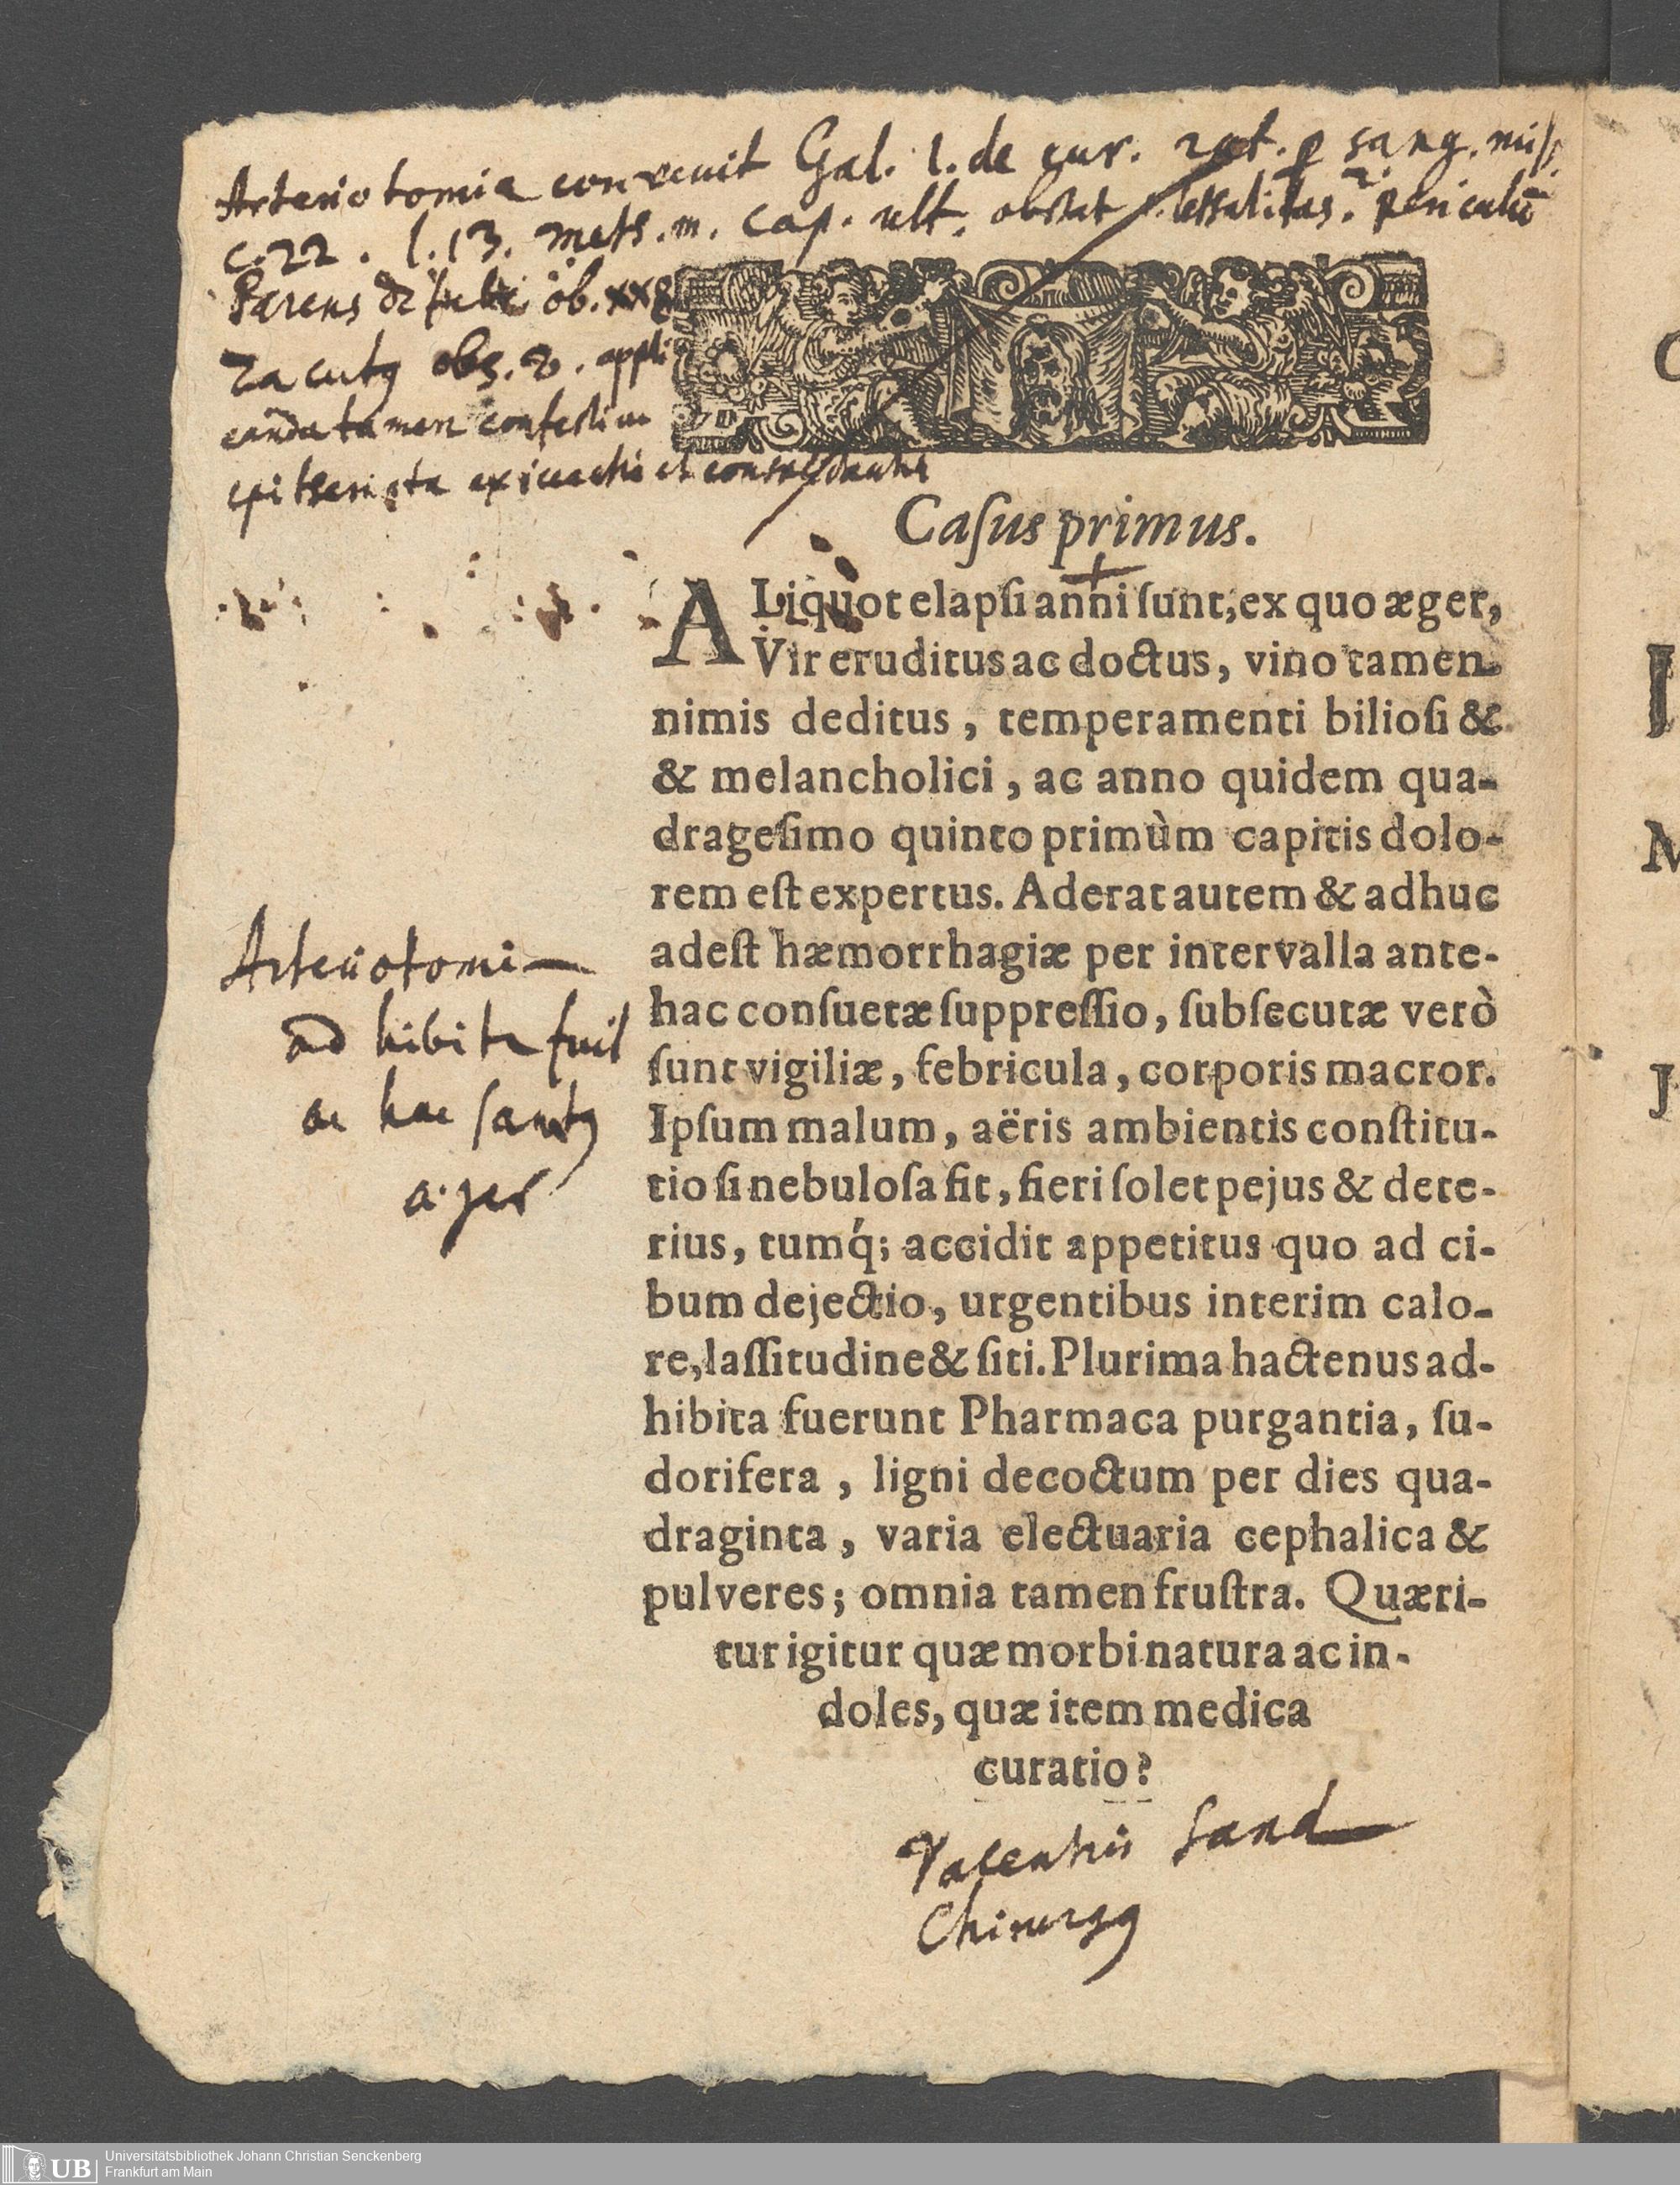 Arteriotomia convenit Gal. l. de cur. rat. p sang. miss.
c. 22. l. 13. meth. m. cap. ult. obstat letalitas. periculū
Pareus ob.
Zacutg obs. appli
canda tamen confestim
et
Caſus primus.
ALiquot elapſi anni ſunt, ex quo æger,
Vir eruditus ac doctus, vino tamen
nimis deditus, temperamenti bilioſi &
& melancholici, ac anno quidem qua-
drageſimo quinto primùm capitis dolo-
rem eſt expertus. Aderat autem & adhuc
adeſt hæmorrhagiæ per intervalla ante-
hac conſuetæ ſuppreſſio, ſubſecutæ verò
ſunt vigiliæ, febricula, corporis macror.
Ipſum malum, aëris ambientis conſtitu-
tio ſi nebuloſa ſit, fieri ſolet pejus & dete-
rius, tumq́; accidit appetitus quo ad ci-
bum dejectio, urgentibus interim calo-
re, laſſitudine & ſiti. Plurima hactenus ad-
hibita fuerunt Pharmaca purgantia, ſu-
dorifera, ligni decoctum per dies qua-
draginta, varia electuaria cephalica &
pulveres; omnia tamen fruſtra. Quæri-
tur igitur quæ morbi natura ac in-
doles, quæ item medica
curatio?
Arteriotomi
adhibita fuit
ac hac sanatg
æger
Valentin Sand
Chirurgg
UB Universitätsbibliothek Johann Christian Senckenberg
Frankfurt am Main